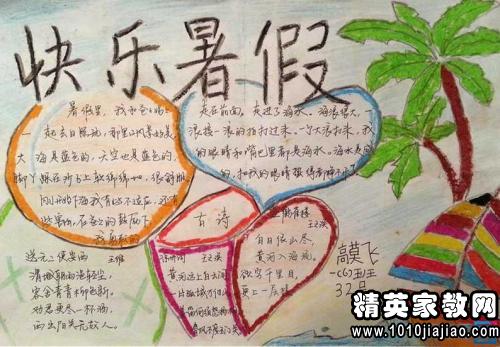 快乐暑假
暑假里，我和爸爸妈妈一
起去日照玩，那里的风景好美
大海是蓝色的，天空也是蓝色的，
脚丫踩在沙子上软绵绵的，很舒服
走在前面。走进了海水，海浪很大，
浪接一浪的拍打过来，
的眼睛和嘴巴里都是海水。海水是咸
古诗
登鹳雀楼
王之涣
白日依山尽，
黄河入海流。
欲穷千里目，
更上一层楼
凉州词
王之涣
黄河远上白云间
一片孤城万仞山
春风不度玉门关
送元二使安西
王维
渭城朝雨浥轻尘，
客舍青青柳色新。
劝君更尽一杯酒，
西出阳关无故人。
高莫飞
一(6)班
32号
精英家教网
www.1010jiajiao.com